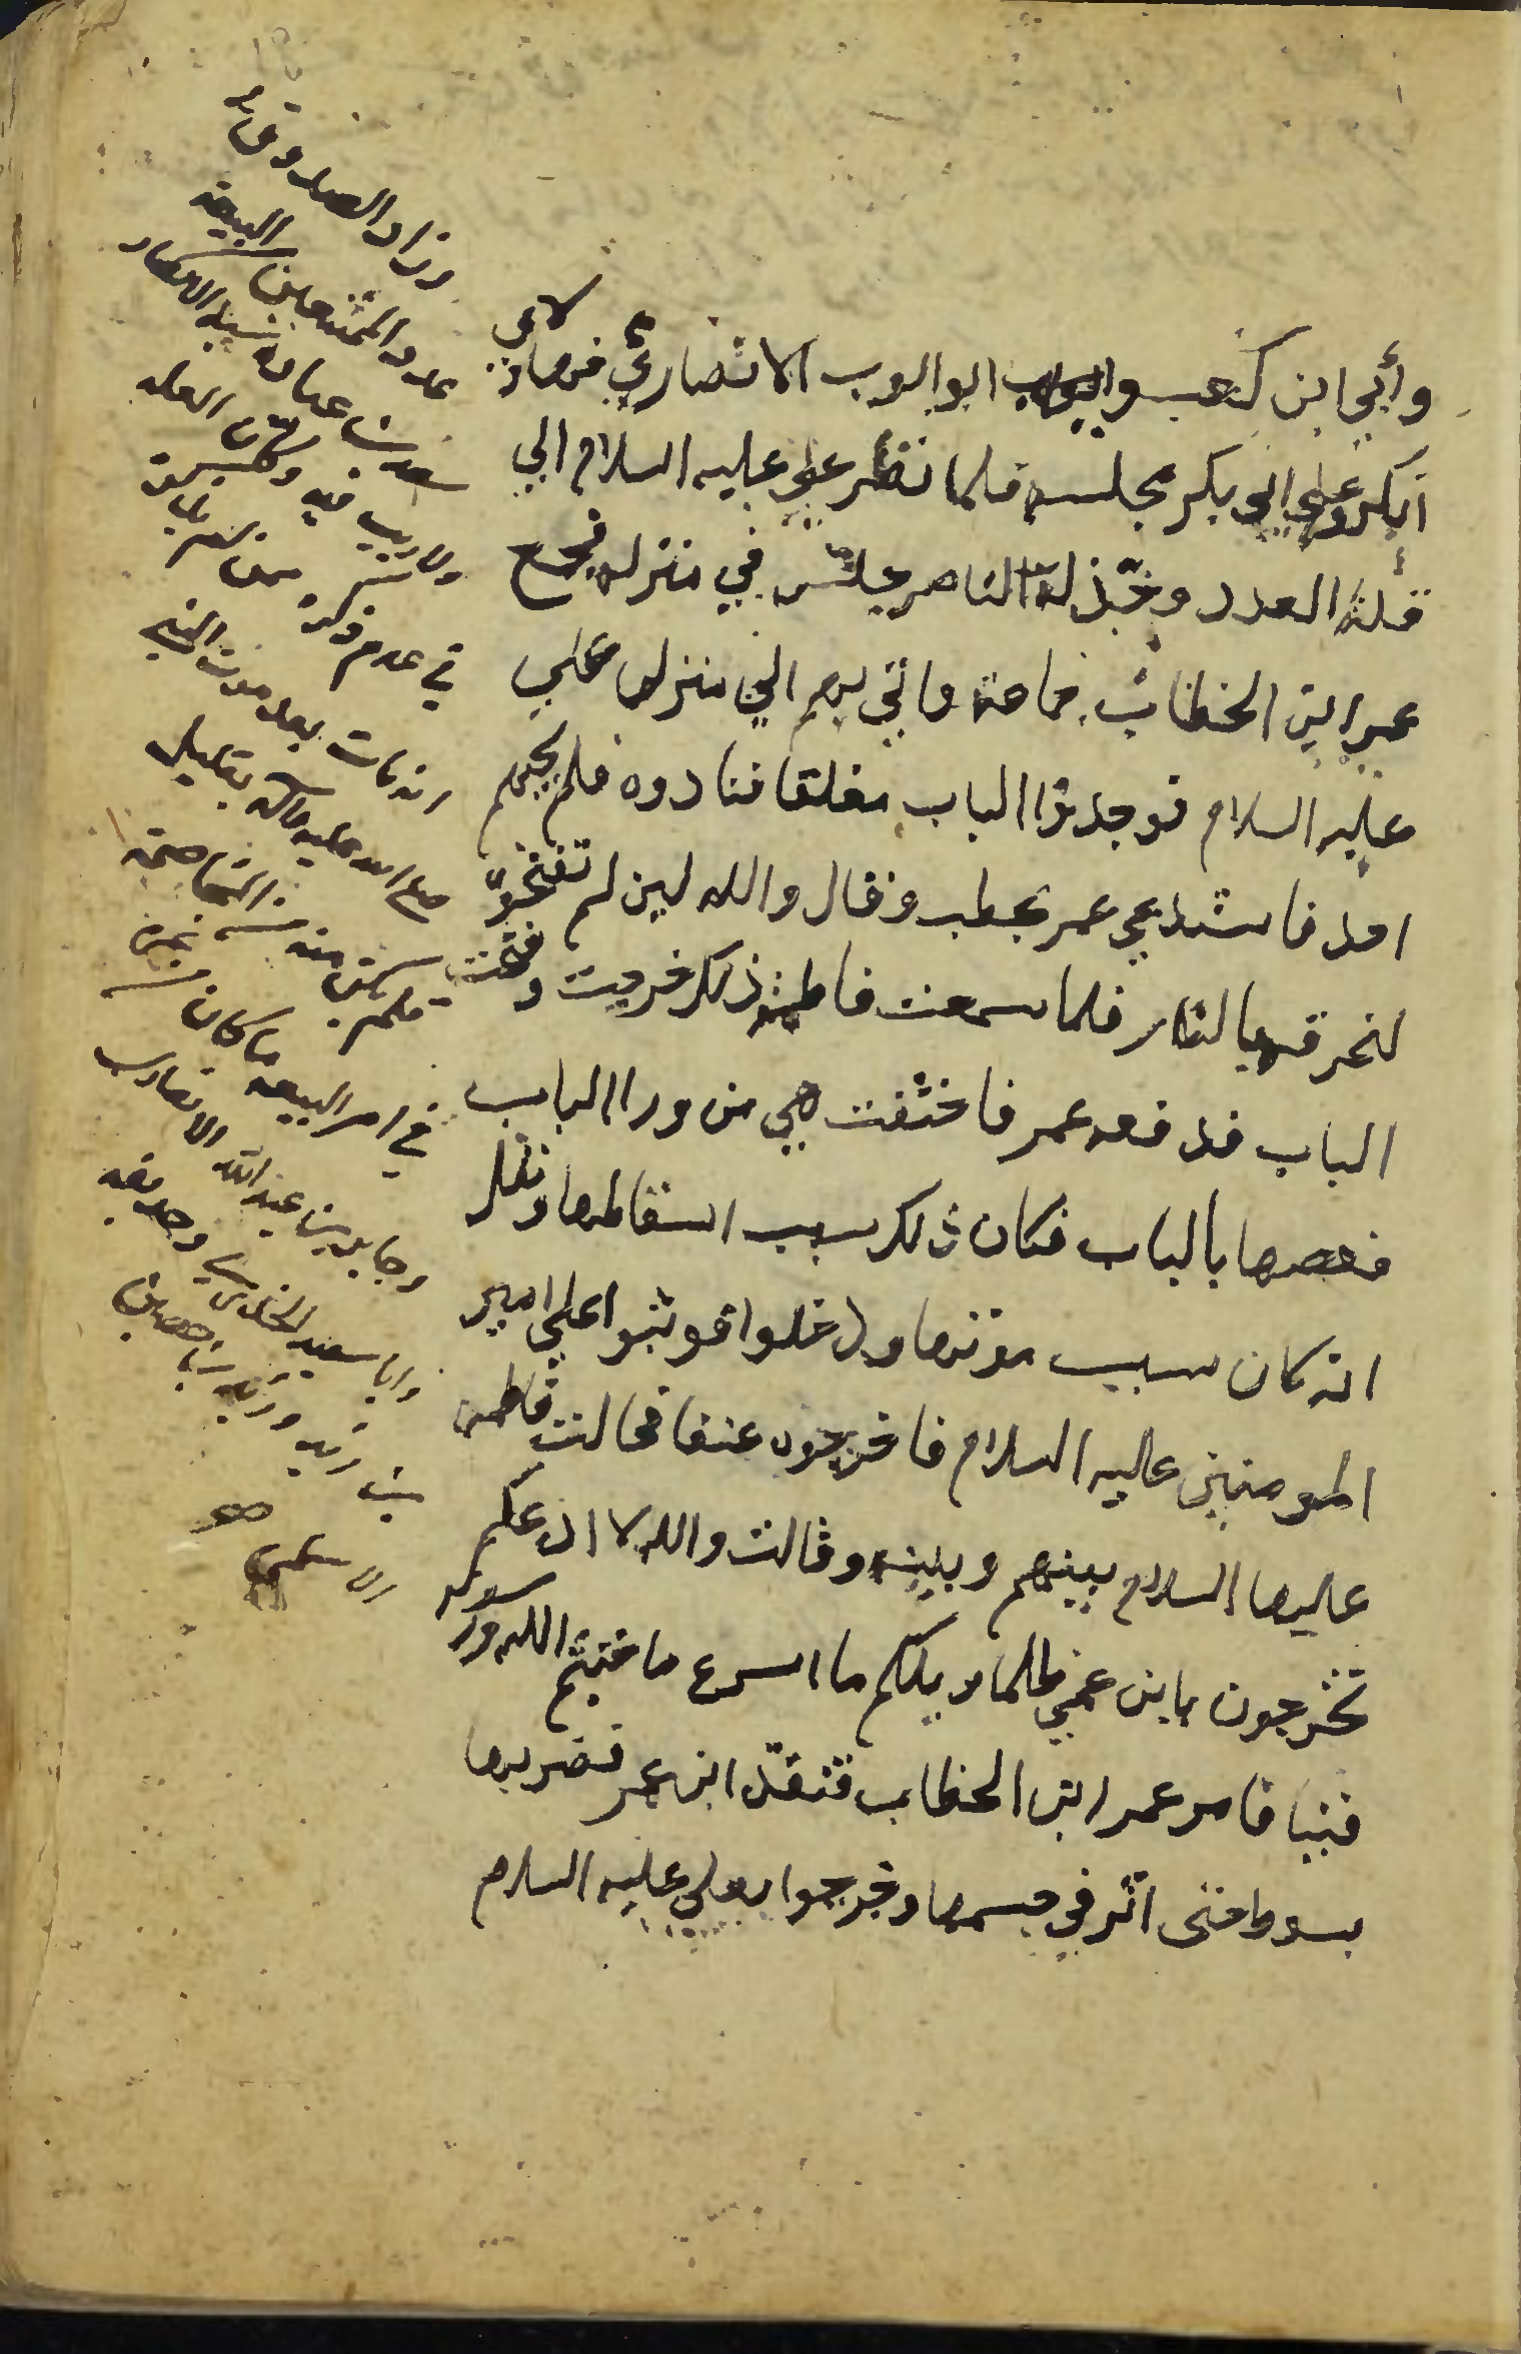 وأبي ابن كعب وابو ايوب الانصاري فهاولاي
انكروا علي ابي بكر مجلسه فلما نظر علي عليه السلام الي
قلة العدد وتخذلة الناصر جلس في منزله فجمع
عمر ابن الخطاب جماعة واتي بهم الي منزل علي
عليه السلام فوجدوا الباب مغلقا فنادوه فلم يجبهم
احد فاستدعي عمر بحطب وقال والله لين لم تفتحوا
لنحرقنه بالنار فلما سمعت فاطمة ذلك خرجت وفتحت
الباب فدفعه عمر فاختفت هي من ورا الباب
فعصرها بالباب فكان ذلك سبب اسقاطها ونقل
انه كان سبب موتها ودخلوا فوثبوا علي امير
المومنين عليه السلام فاخرجوه عنفا فحالت فاطمة
عليها السلام بينهم وبينه وقالت والله لا ادعكم
تخرجون بابن عمي ظلما ويلكم ما اسرع ما خنتم الله ورسوله
فينا فامر عمر ابن الخطاب قنفذ ابن عمر فضربها
بسوط حتى اثر في جسمها وخرجوا بعلي عليه السلام
وزاد الصدوق ره
عدد الممتنعين من البيعة
سعد بن عبادة سيد الانصار
ولا ريب فيه ولعل العلة
في عدم ذكره
انه مات بعد موت النبي
صلى الله عليه وآله بقليل
فلم يتحقق منه من المخاصمة
في امر البيعة ما كان من غيره
وجابر بن عبد الله الانصاري
وابا سعيد الخدري وحذيفة
بن زيد وزيد بن
الاسلمي صح